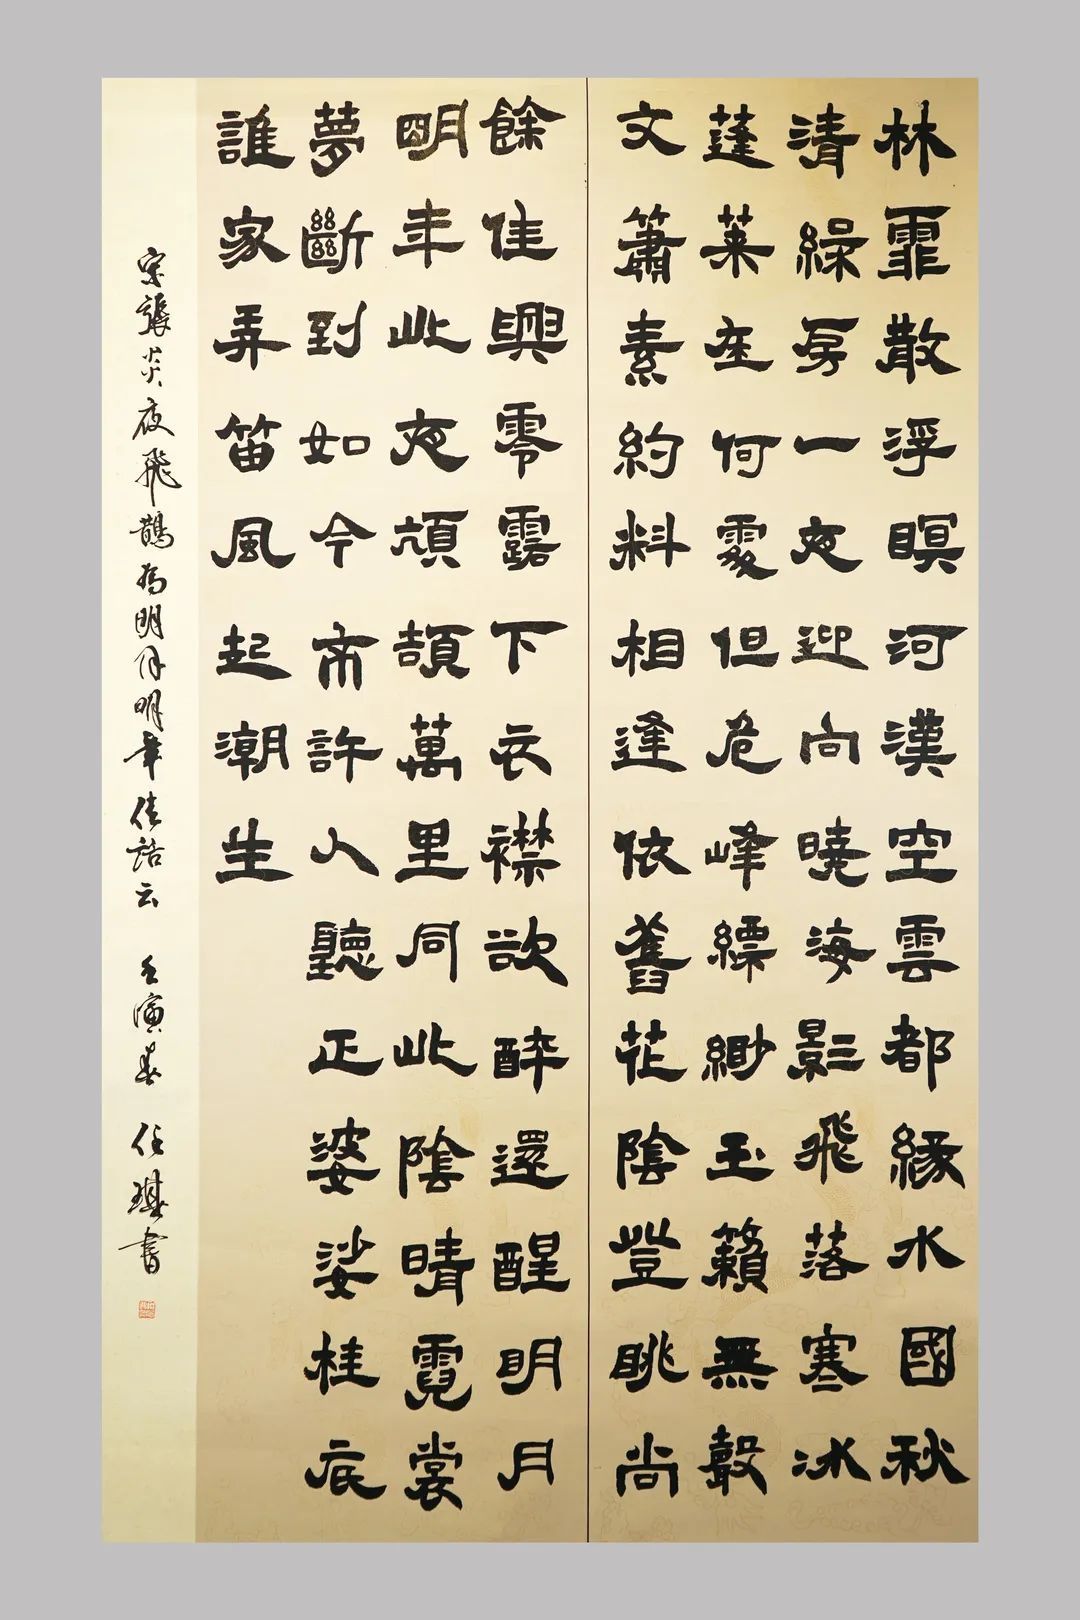 林霏散浮暝河漢空雲都緣水國秋
清綠房一夜迎向曉海影飛落寒冰
蓬萊在何處但危峰縹緲玉籟無聲
文簫素約料相逢依舊花陰登眺尚
餘佳興零露下衣襟欲醉還醒明月
明年此夜頏頡萬里同此陰晴霓裳
夢斷到如今不許人聽正婆娑桂底
誰家弄笛風起潮生
宋張炎夜飛鵲為明月明年佳話云 壬寅春 任琪書